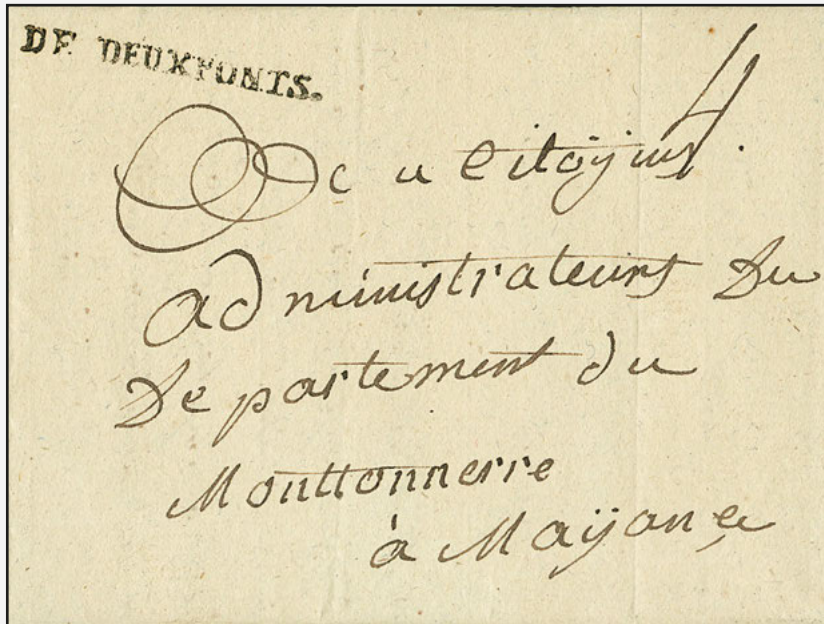 DE DEUXPONTS.
4
citoyens
administrateurs du
Departement du
Monttonnerre
à Mayance